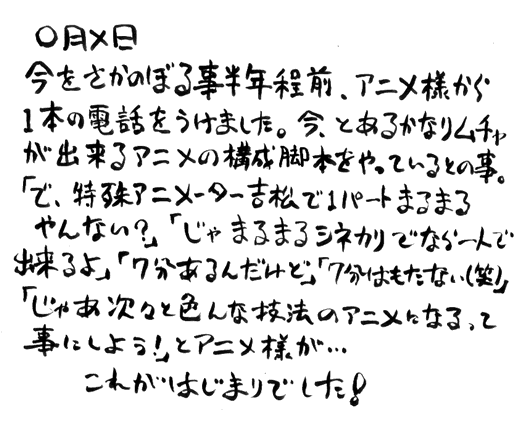 〇月×日
今をさかのぼる事半年程前、アニメ様から
1本の電話をうけました。今、とあるかなりムチャ
が出来るアニメの構成脚本をやっているとの事。
「で、特殊アニメーター吉松で1パートまるまる
やんない?」「じゃまるまるシネカリでなら一人で
出来るよ」「7分あるんだけど」「7分はもたない(笑)」
「じゃあ次々と色んな技法のアニメになるって
事にしよう!」とアニメ様が…
これがはじまりでした!